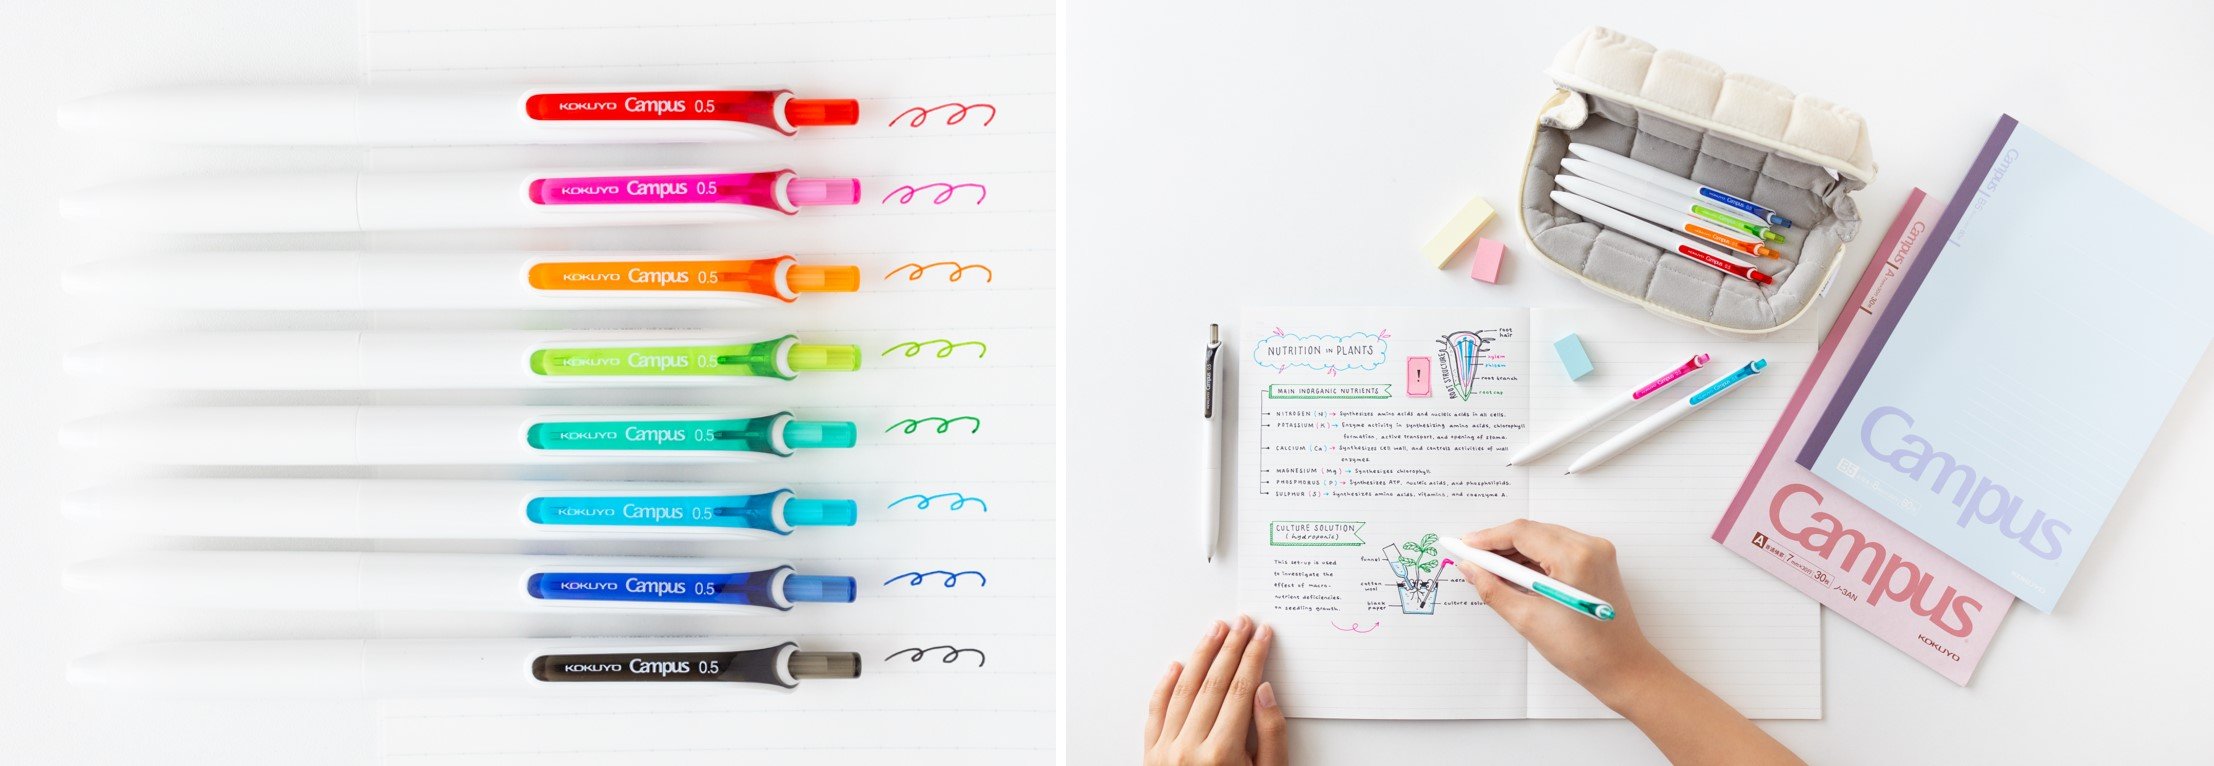 KOKUYO Campus 0.5
KOKUYO Campus 0.5
KOKUYO Campus 0.5
KOKUYO Campus 0.5
KOKUYO Campus 0.5
KOKUYO Campus 0.5
KOKUYO Campus 0.5
KOKUYO Campus 0.5
NUTRITION IN PLANTS
!
ROOT STRUCTURE
root hair
xylem
phloem
root branch
root cap
MAIN INORGANIC NUTRIENTS
NITROGEN (N) → Synthesizes amino acids and nucleic acids in all cells.
POTASSIUM (K) → Enzyme activity in synthesizing amino acids, chlorophyll
formation, active transport, and opening of stoma.
CALCIUM (Ca) → Synthesizes cell wall, and controls activities of wall
enzymes
MAGNESIUM (Mg) → Synthesizes chlorophyll
PHOSPHORUS (P) → Synthesizes ATP, nucleic acids, and phospholipids.
SULPHUR (S) → Synthesizes amino acids, vitamins, and coenzyme A.
CULTURE SOLUTION
(hydroponic)
This set-up is used
to investigate the
effect of macro-
nutrient deficiencies
on seedling growth.
funnel
cotton
wool
black
paper
aera
culture solut
Campus
Campus
B5
Campus
Campus
A 7mm×30行 30枚 ノ-3AN
KOKUYO